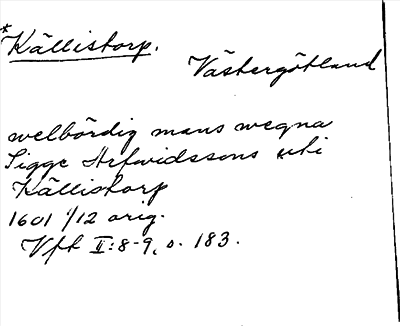 *Källistorp.
Västergötland
welbördig mans wegna
Sigge Arfwidssons uti
Källistorp
1601 1/12 orig.
Vft II:8-9, s. 183.